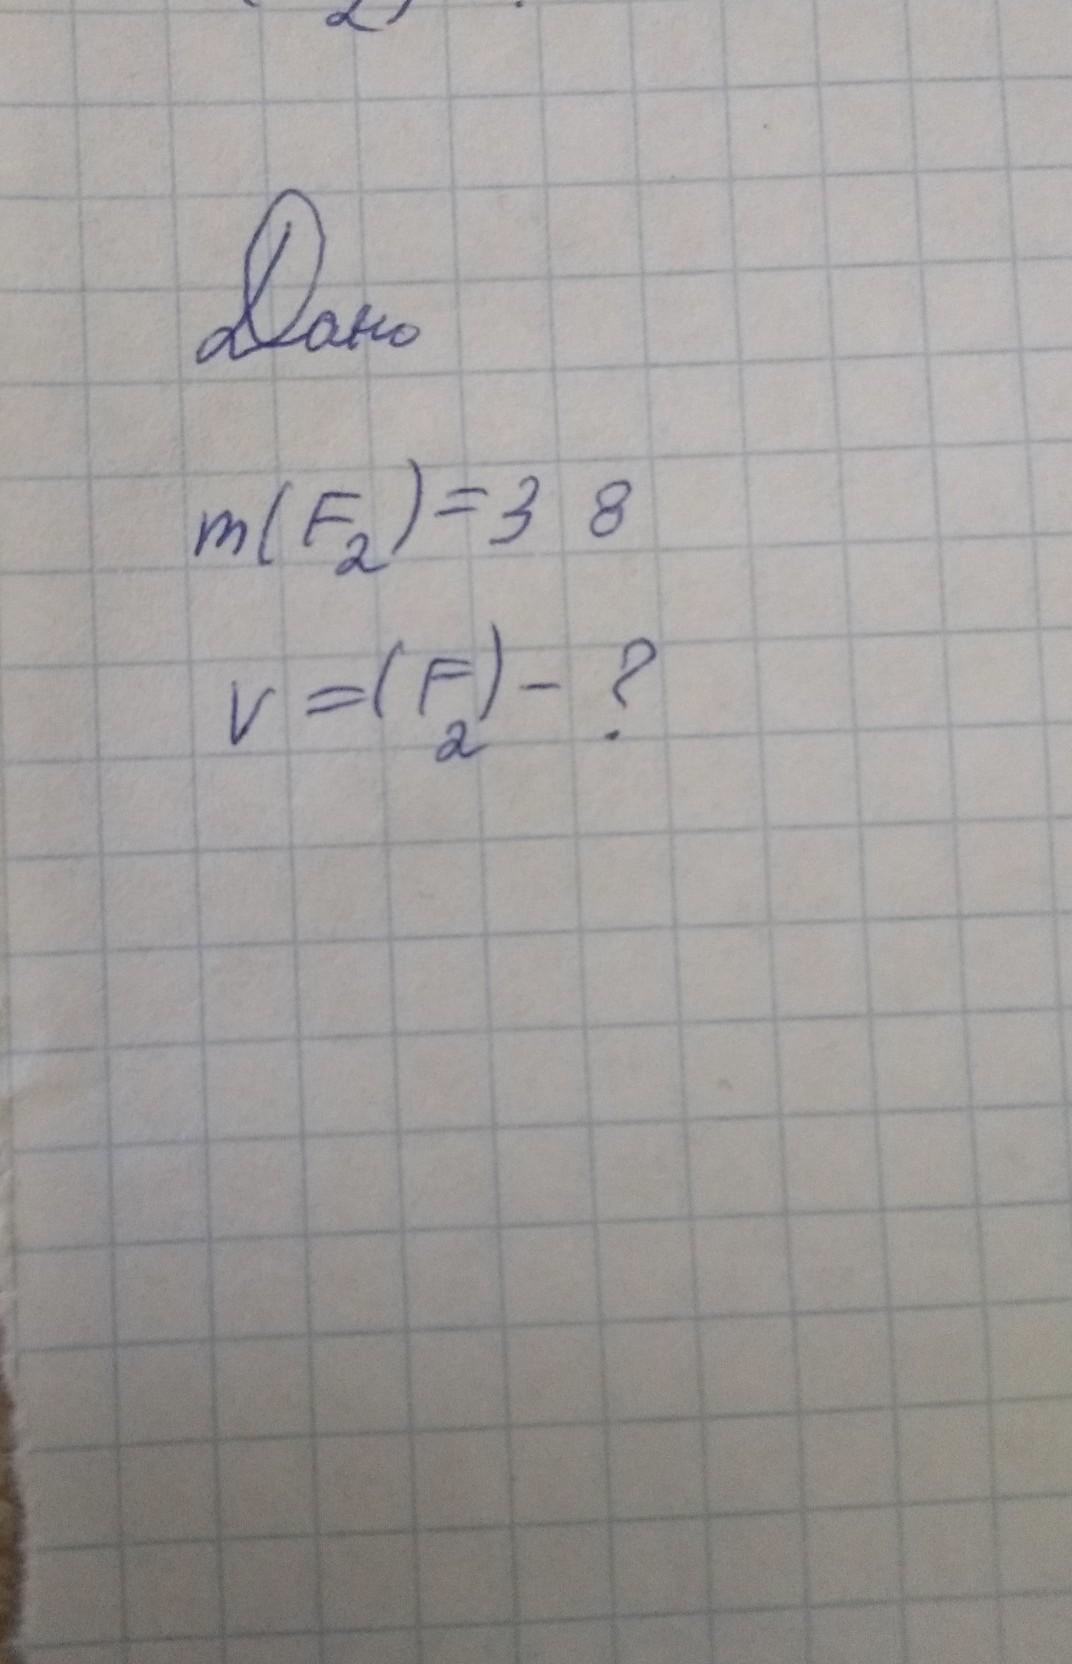 2)
Дано
m(F₂)=3 8
v=(F₂)-?